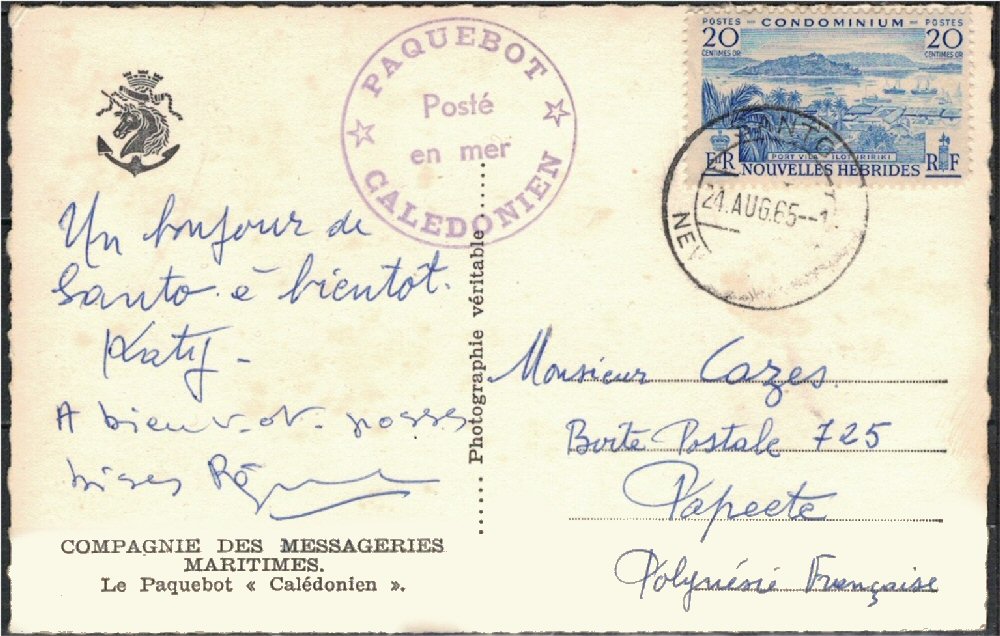 PAQUEBOT
Posté
en mer
CALEDONIEN
POSTES - CONDOMINIUM - POSTES
20 20
CENTIMES OR CENTIMES OR
PORT VILA ILOT IRIRIKI
EIIR NOUVELLES HÉBRIDES RF
SANTO
24.AUG.65
NEW
Un bonjour de
Santo. à bientôt.
Katy -
A bientôt. grosses
bises
Photographie véritable
Monsieur Cazes.
Boite Postale 725
Papeete
Polynésie Française
COMPAGNIE DES MESSAGERIES
MARITIMES.
Le Paquebot « Calédonien ».